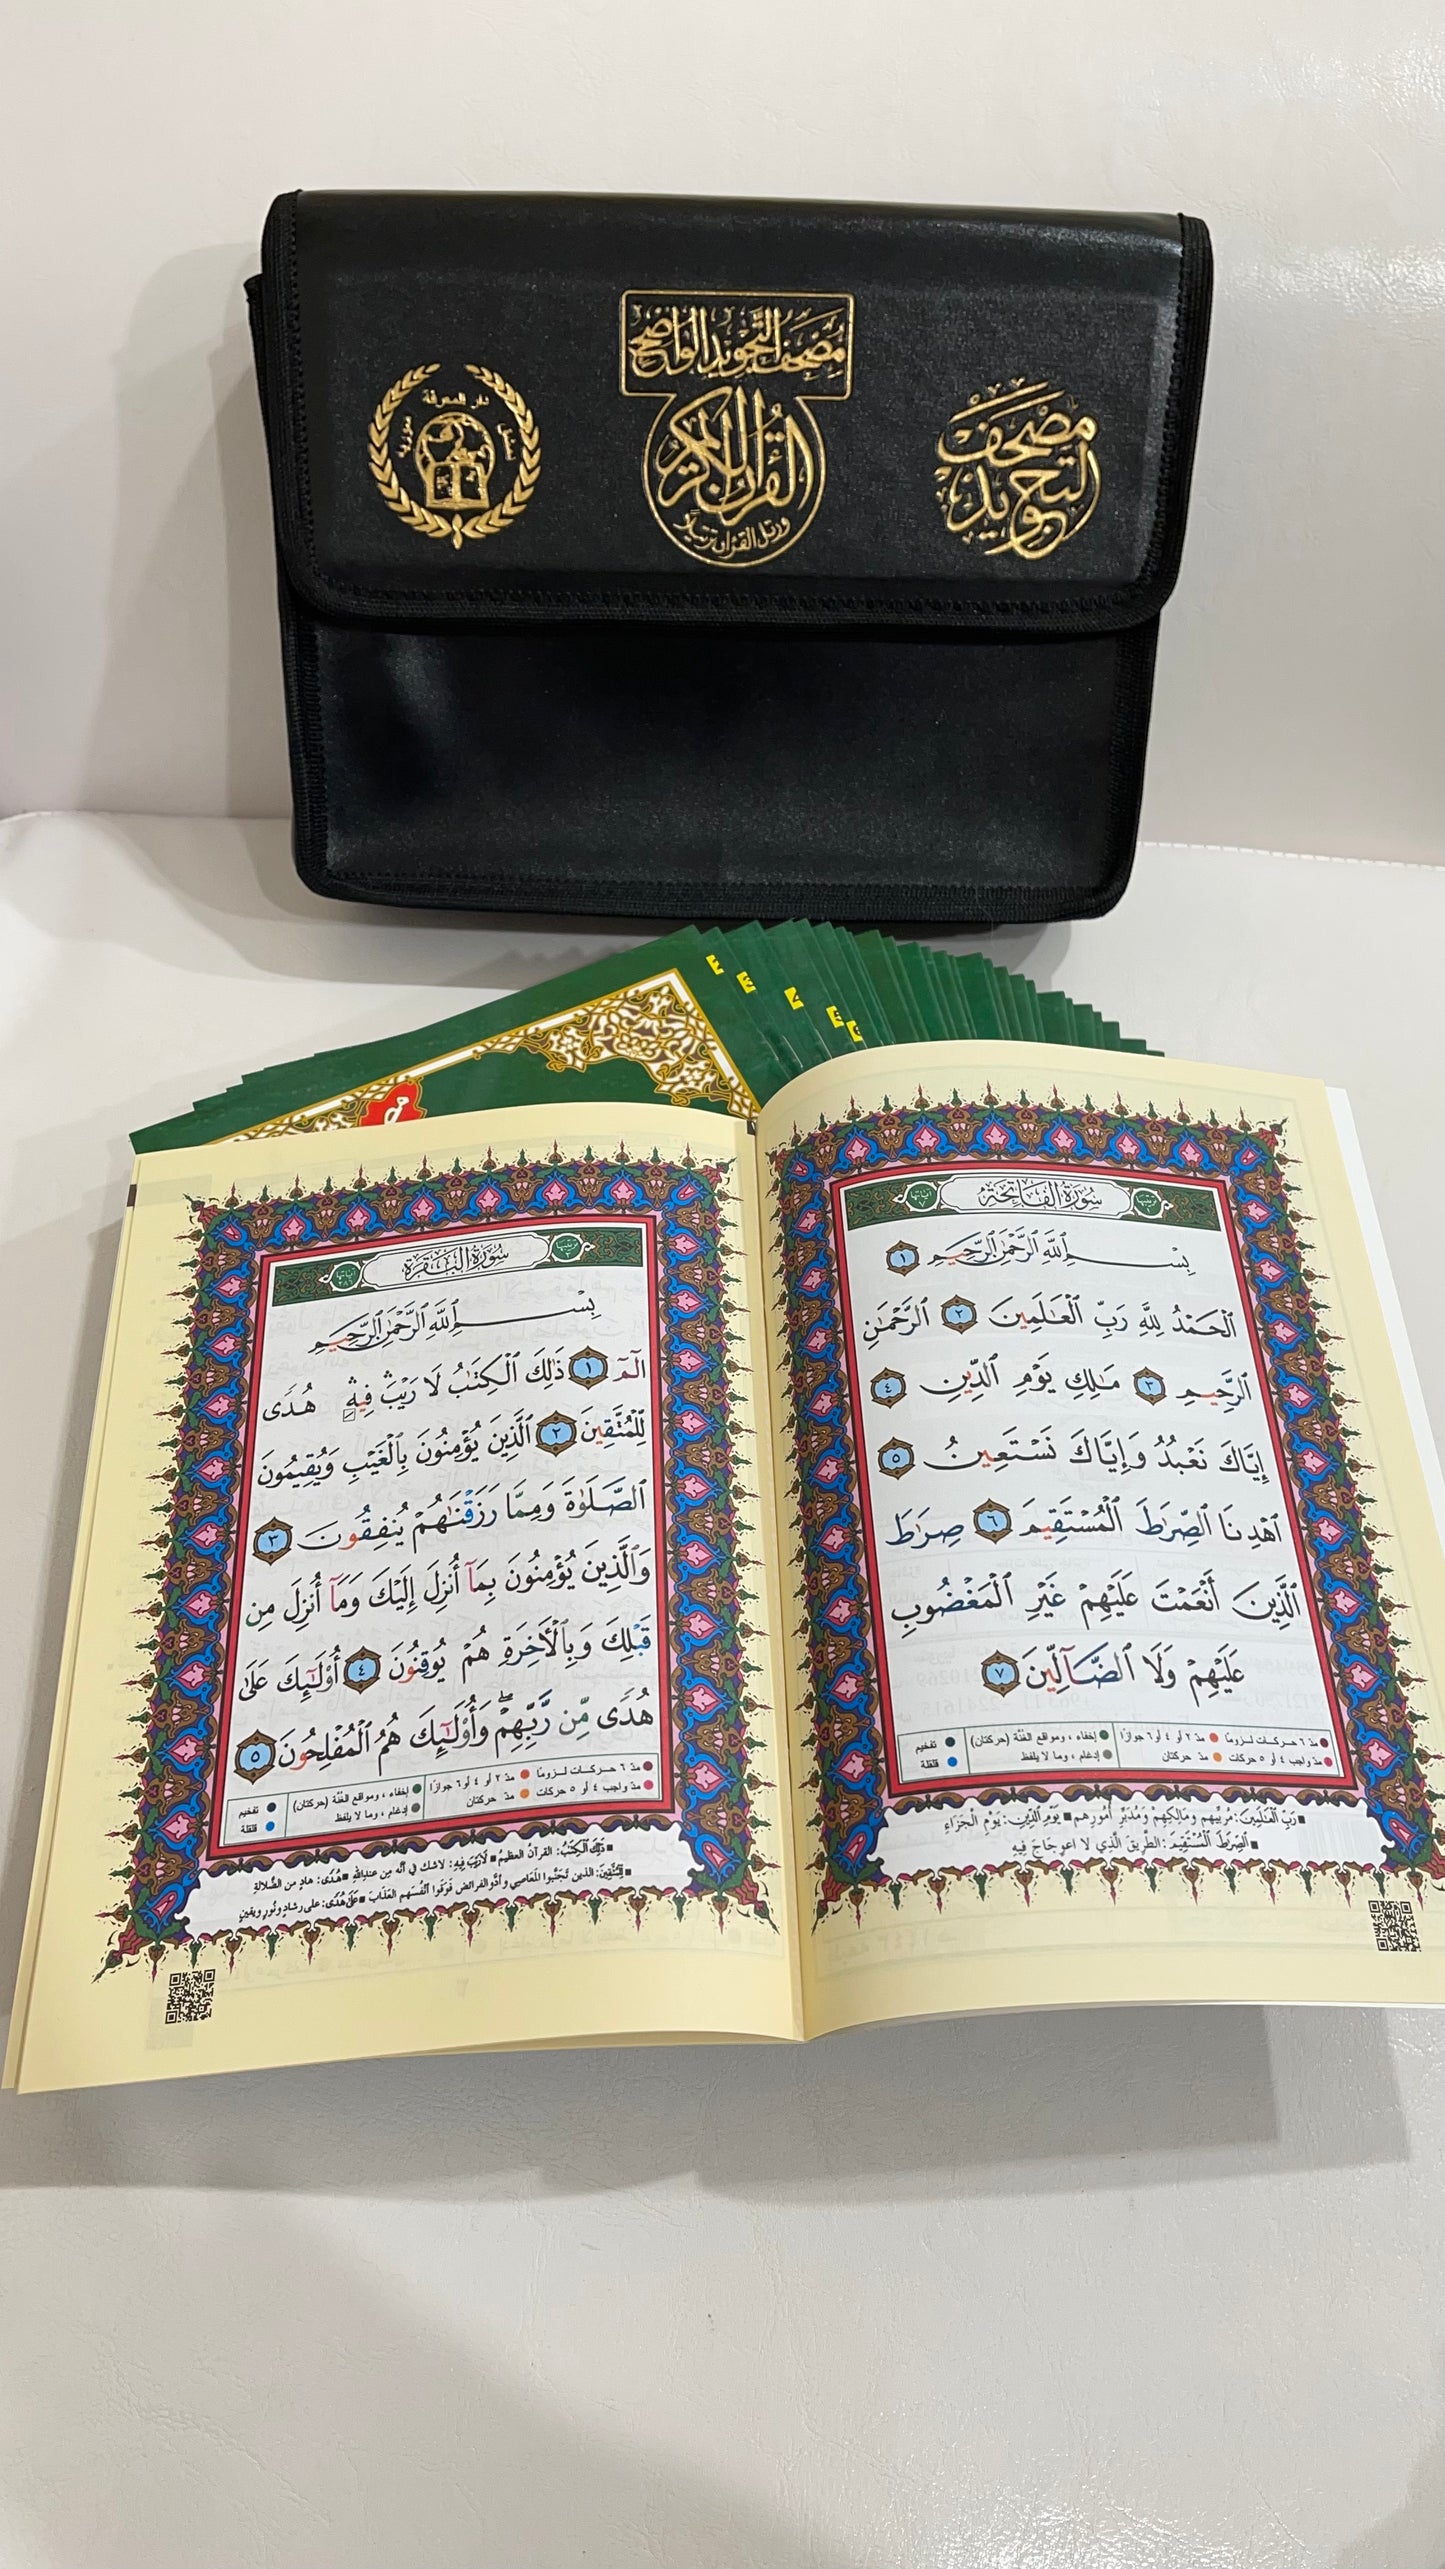 مصحف التجويد الواضح
القرآن الكريم
ورتل القرآن ترتيلا
مصحف
التجويد
دار المعرفة
دمشق
سورية
سُورَةُ الفَاتِحَةِ
آياتها
٧
بِسْمِ ٱللَّهِ ٱلرَّحْمَٰنِ ٱلرَّحِيمِ ١
ٱلْحَمْدُ لِلَّهِ رَبِّ ٱلْعَٰلَمِينَ ٢ ٱلرَّحْمَٰنِ
ٱلرَّحِيمِ ٣ مَٰلِكِ يَوْمِ ٱلدِّينِ ٤
إِيَّاكَ نَعْبُدُ وَإِيَّاكَ نَسْتَعِينُ ٥
ٱهْدِنَا ٱلصِّرَٰطَ ٱلْمُسْتَقِيمَ ٦ صِرَٰطَ
ٱلَّذِينَ أَنْعَمْتَ عَلَيْهِمْ غَيْرِ ٱلْمَغْضُوبِ
عَلَيْهِمْ وَلَا ٱلضَّآلِّينَ ٧
مدّ ٦ حركات لزوماً مدّ ٢ أو ٤ أو ٦ جوازاً إخفاء، ومواقع الغُنَّة (حركتان) تفخيم
مدّ واجب ٤ أو ٥ حركات مدّ حركتان إدغام، وما لا يلفظ قلقلة
رَبِّ ٱلْعَٰلَمِينَ: مُرَبِّيهِم ومَالِكِهِمْ وَمُدَبِّرِ أُمُورِهم يَوْمِ ٱلدِّينِ: يَوْمِ الْجَزَاءِ
ٱلصِّرَٰطَ ٱلْمُسْتَقِيمَ: الطَّرِيقَ الَّذِي لا اعوِجَاجَ فِيهِ
سُورَةُ البَقَرَةِ
آياتها
٢٨٦
بِسْمِ ٱللَّهِ ٱلرَّحْمَٰنِ ٱلرَّحِيمِ
الٓمٓ ١ ذَٰلِكَ ٱلْكِتَٰبُ لَا رَيْبَ ۛ فِيهِ ۛ هُدًى
لِّلْمُتَّقِينَ ٢ ٱلَّذِينَ يُؤْمِنُونَ بِٱلْغَيْبِ وَيُقِيمُونَ
ٱلصَّلَوٰةَ وَمِمَّا رَزَقْنَٰهُمْ يُنفِقُونَ ٣
وَٱلَّذِينَ يُؤْمِنُونَ بِمَآ أُنزِلَ إِلَيْكَ وَمَآ أُنزِلَ مِن
قَبْلِكَ وَبِٱلْـَٔاخِرَةِ هُمْ يُوقِنُونَ ٤ أُو۟لَٰٓئِكَ عَلَىٰ
هُدًى مِّن رَّبِّهِمْ ۖ وَأُو۟لَٰٓئِكَ هُمُ ٱلْمُفْلِحُونَ ٥
مدّ ٦ حركات لزوماً مدّ ٢ أو ٤ أو ٦ جوازاً إخفاء، ومواقع الغُنَّة (حركتان) تفخيم
مدّ واجب ٤ أو ٥ حركات مدّ حركتان إدغام، وما لا يلفظ قلقلة
ذَٰلِكَ ٱلْكِتَٰبُ: القرآن العظيم لَا رَيْبَ فِيهِ: لاشك في أنَّه مِن عنداللهِ هُدًى: هادٍ من الضَّلالةِ
لِّلْمُتَّقِينَ: الذين تَجنَّبوا المَعاصِي وأدَّوا الفرائضَ فَوَقَوا أنْفُسَهم العَذابَ عَلَىٰ هُدًى: على رشادٍ ونُورٍ ويقينٍ